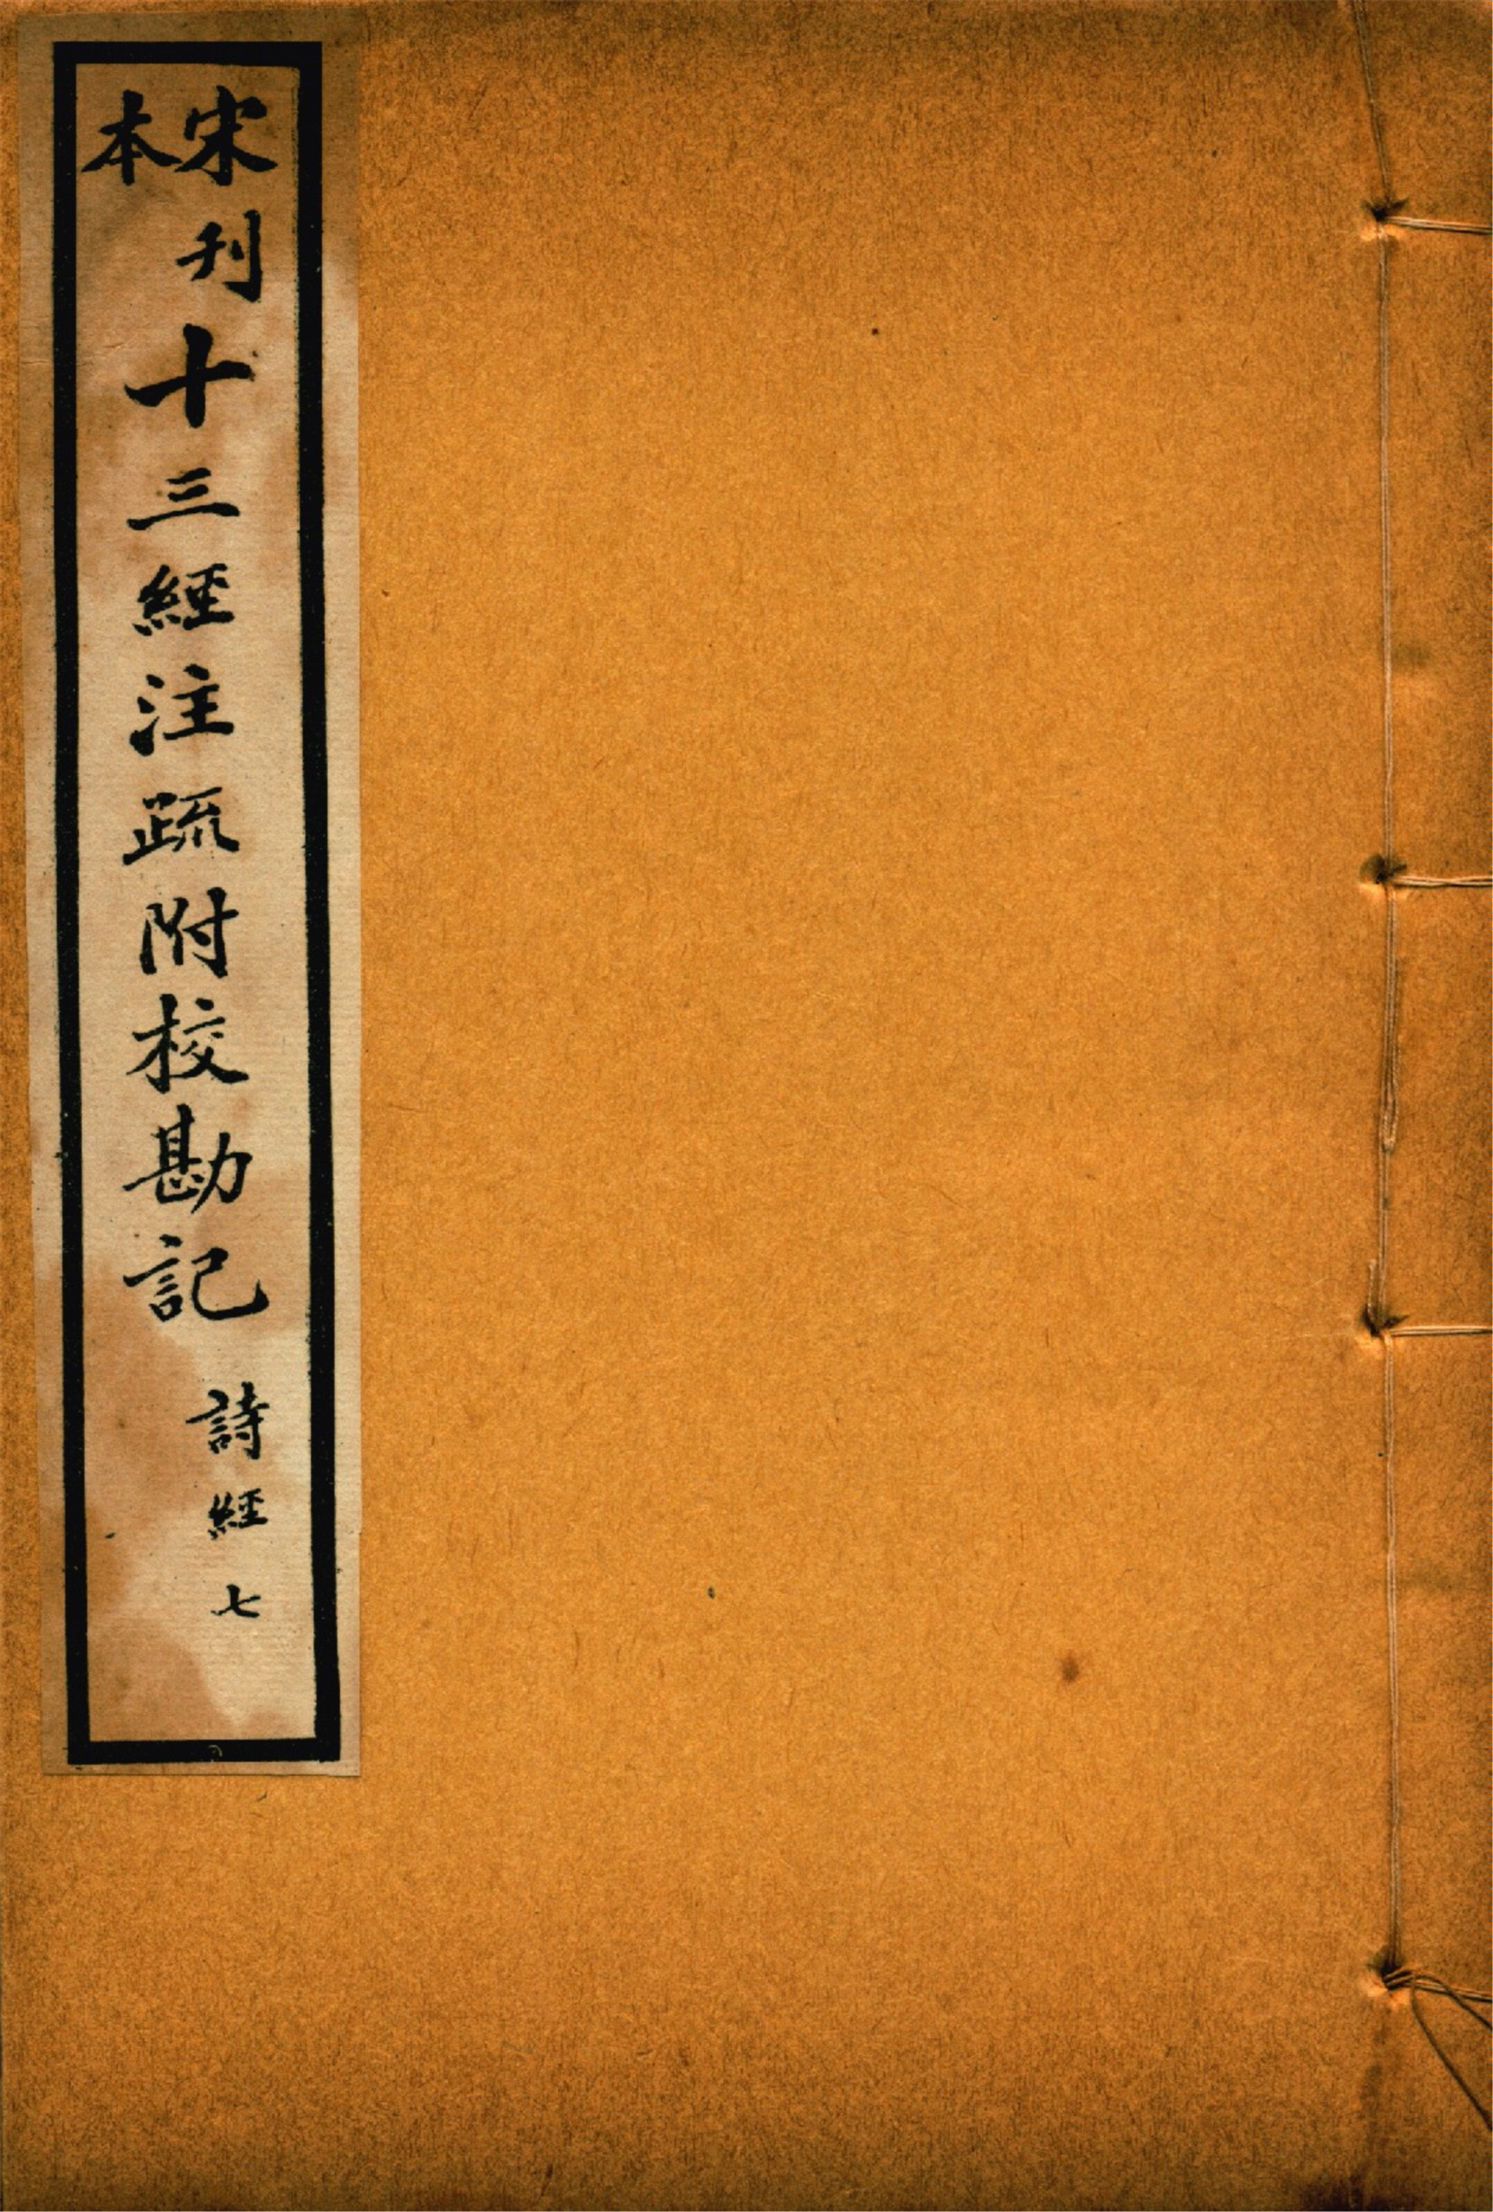 宋刊本十三經注疏附校勘記
詩經 七